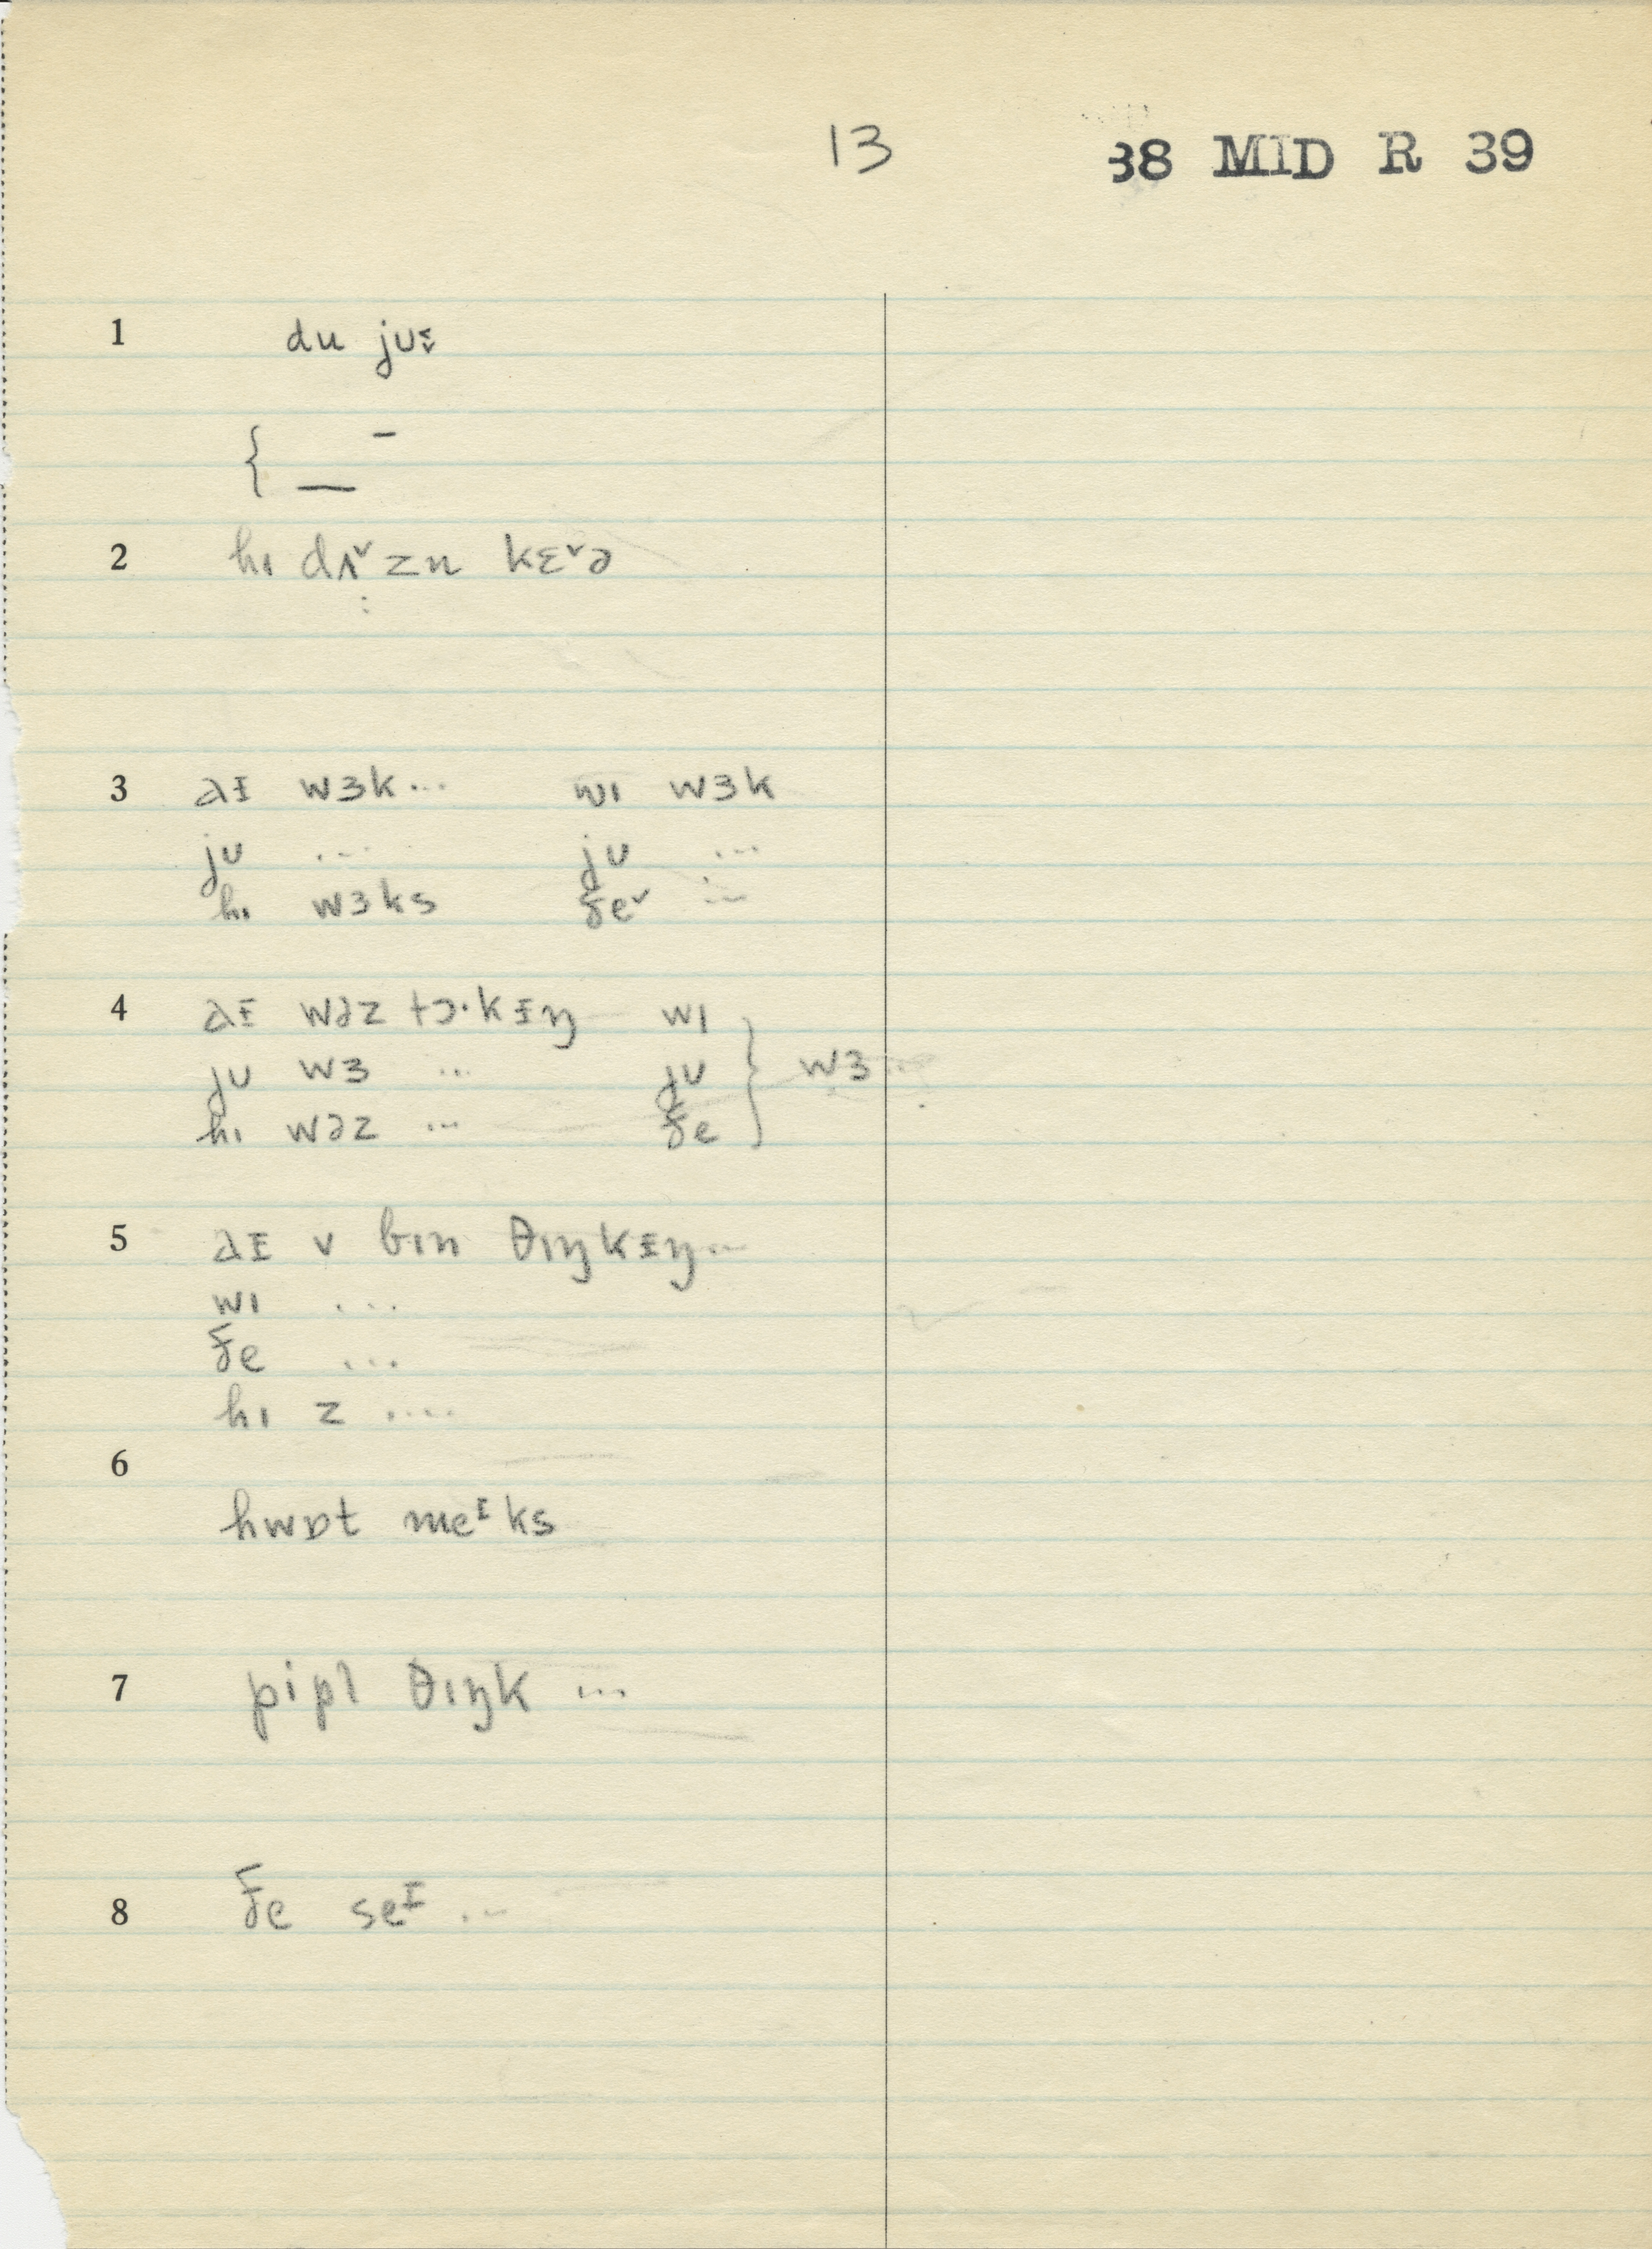 13 38 MID R 39
1 du juɪ̵ˬ
{ — –
2 hɪ dʌ˅zn kɛ˅ə
:
3 aɪ̵ wɜk ... wɪ wɜk
ju ... ju ...
hɪ wɜks ðe˅ ...
4 aɪ̵ wəz tɔ·kɪ̵ŋ wɪ
ju wɜ ... ju } wɜ
hɪ wəz ... ðe
5 aɪ̵ v bɪn θɪŋkɪ̵ŋ ...
wɪ ...
ðe ...
hɪ z ....
6
hwɒt meᶦks
7 pipl θɪŋk ...
8 ðe seᶦ ...